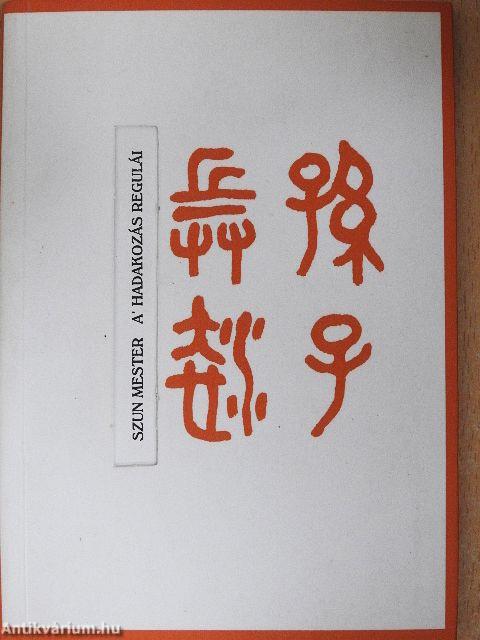 孫子
兵法
SZUN MESTER A' HADAKOZÁS REGULÁI
Antikvárium.hu